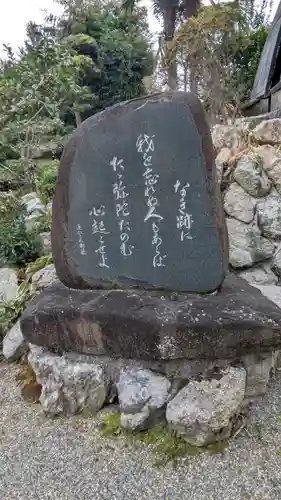 なき跡に
我を忘れぬ人もあらば
たゞ弥陀たのむ
心起せよ